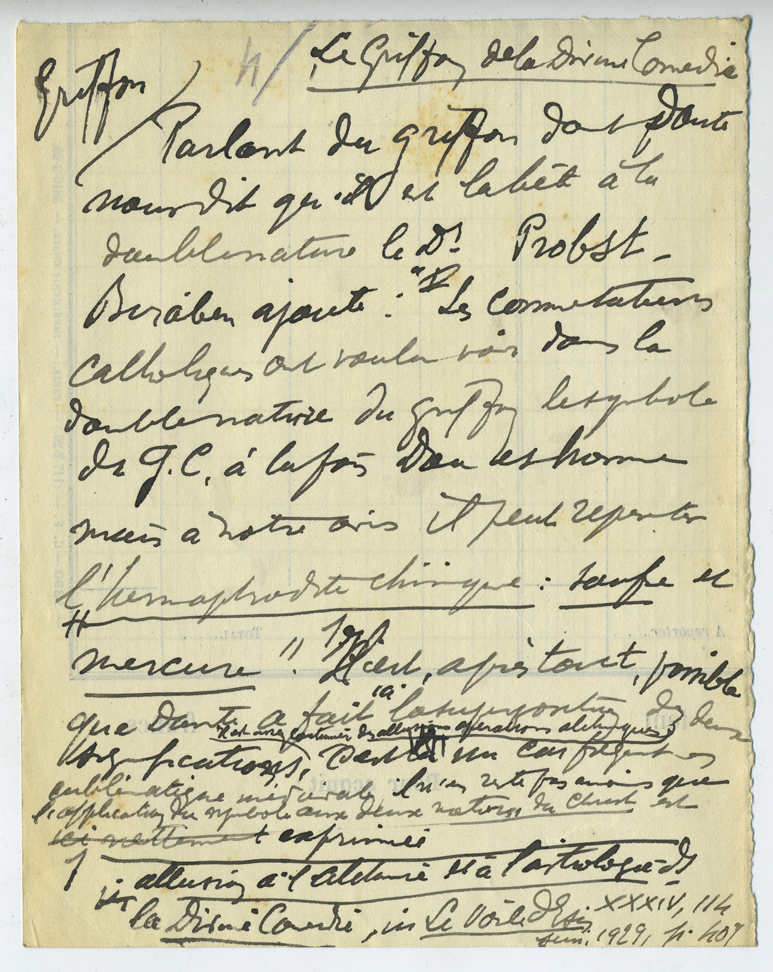 Griffon
4/ Le Griffon de la Divine Comedie
Parlant du griffon dont Dante
nous dit qu'il est la bête à la
double nature le Dr. Probst-
Biraben ajoute : " Les commentateurs
catholiques ont voulu voir dans la
double nature du griffon le symbole
de J.C, à la fois Dieu et homme
mais à notre avis il peut representer
l'hermaphrodite chimique : soufre et
mercure ".
Il est, après tout, possible
que Dante a fait la des deux
allusions operations alchimiques
significations, c'est là un cas fréquent en
emblématique médiévale. Il n'en reste pas moins que
l'application du symbole aux deux natures du Christ est
ici nettement exprimée
1 allusion à l'Alchimie et à l'astrologie ds
la Divine Comédie, in Le Voile d'Isis XXXIV, 114
1929, p. 407
A reporter
Total